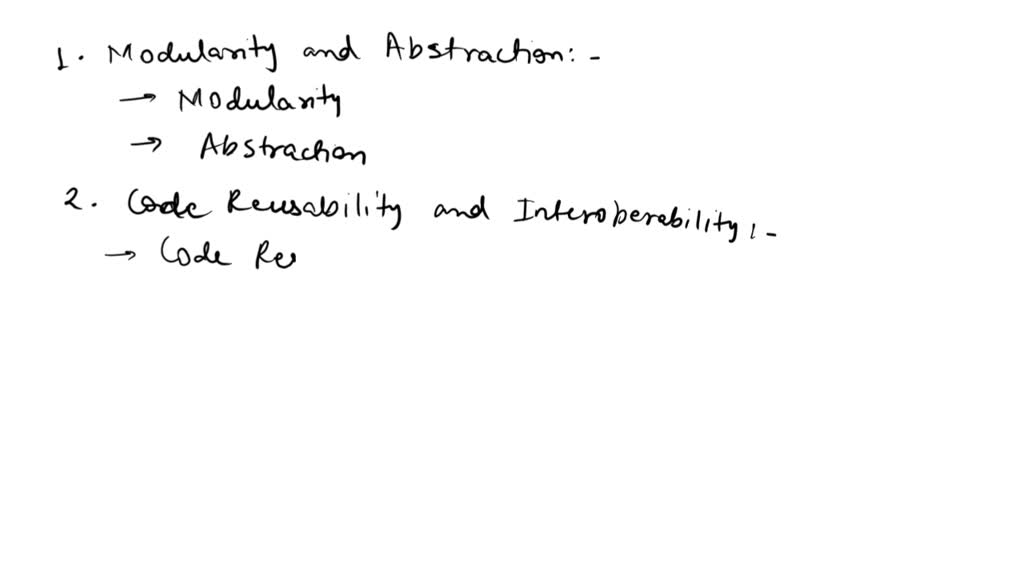 1. Modularity and Abstraction:-
→ Modularity
→ Abstraction
2. Code Reusability and Interoperability:-
→ Code Re